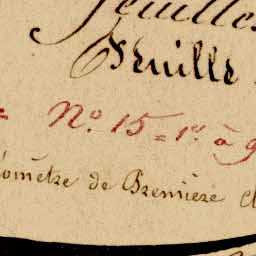 feuilles
Feuille
N.º 15 = 1.º à 9
omètre de Première Cl